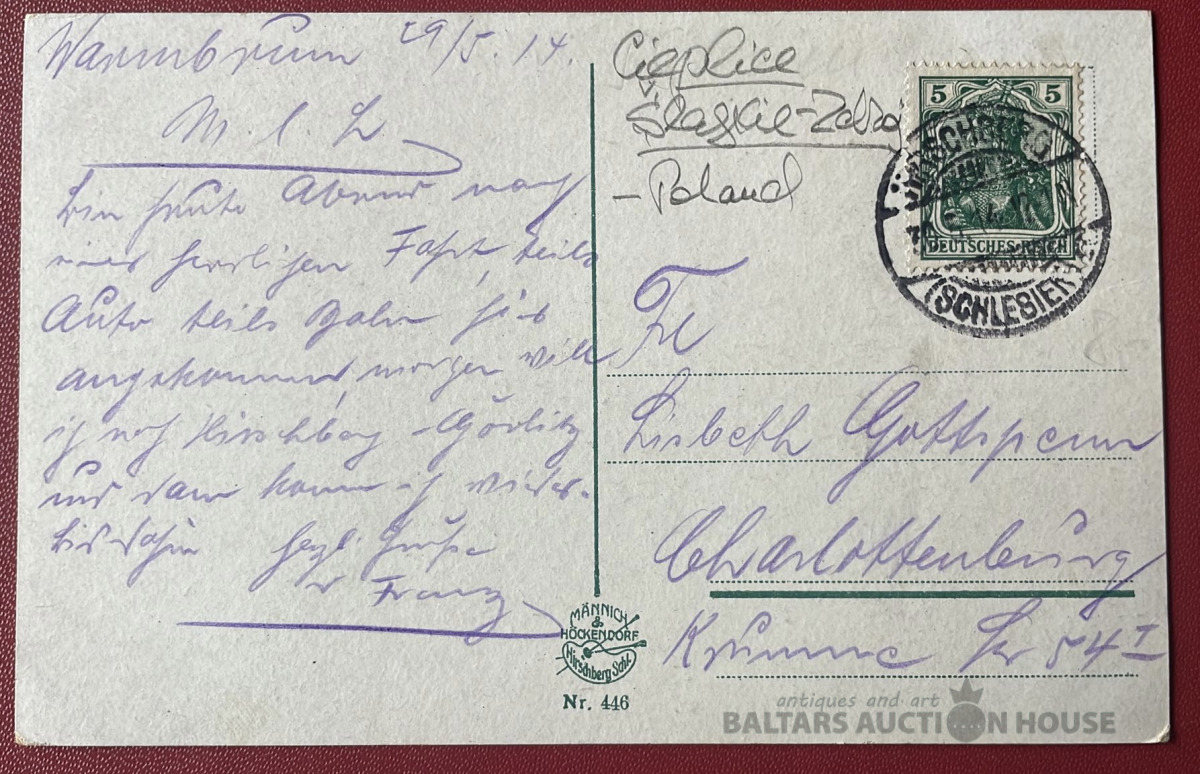 Warmbrunn 29/5. 14.
M. l. L
Bin heute Abend nach
einer herrlichen Fahrt, teils
Auto teils Bahn hier
angekommen, morgen will
ich nach Hirschberg - Görlitz
und dann komm ich wieder.
herzl. Grüße
Franz
Cieplice
Śląskie-Zdrój
- Poland
5 5
DEUTSCHES REICH
(SCHLESIEN)
Frl
Lisbeth
Charlottenburg
Krumme Str 54 I
MÄNNICH
&
HÖCKENDORF
Hirschberg Schl.
Nr. 446
antiques and art
BALTARS AUCTION HOUSE